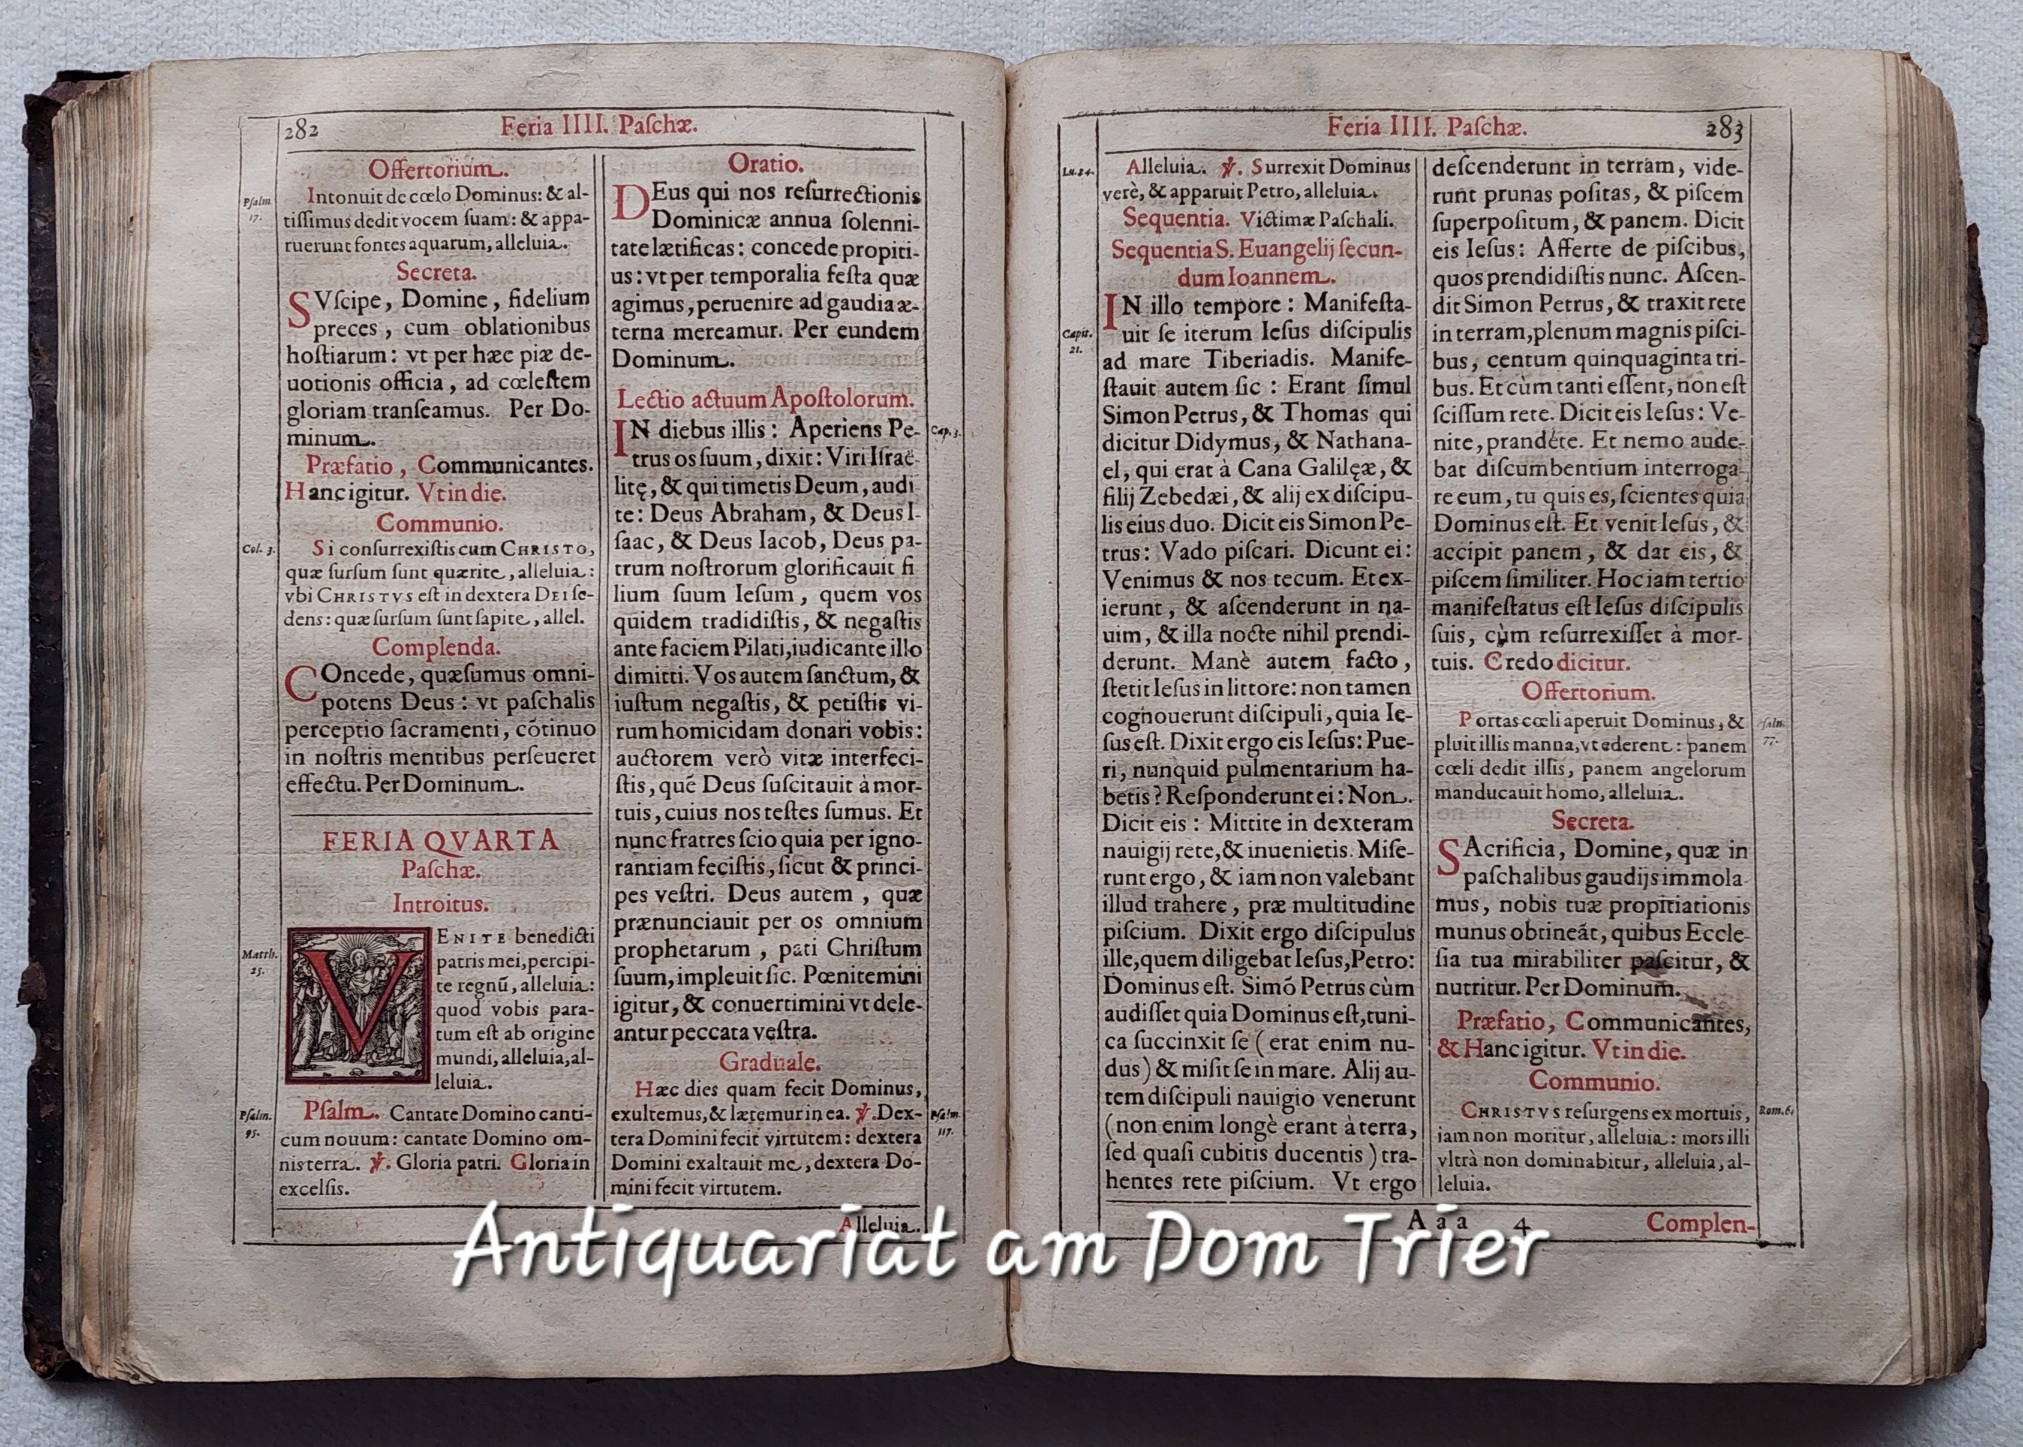 282
Feria IIII. Paſchæ.
Offertorium.
Pſalm.
17.
Intonuit de cœlo Dominus: & al-
tiſſimus dedit vocem ſuam: & appa-
ruerunt fontes aquarum, alleluia.
Secreta.
SVſcipe, Domine, fidelium
preces, cum oblationibus
hoſtiarum: vt per hæc piæ de-
uotionis officia, ad cœleſtem
gloriam tranſeamus. Per Do-
minum.
Præfatio, Communicantes.
Hanc igitur. Vt in die.
Communio.
Col. 3.
Si conſurrexiſtis cum CHRISTO,
quæ ſurſum ſunt quærite, alleluia:
vbi CHRISTVS eſt in dextera DEI ſe-
dens: quæ ſurſum ſunt ſapite, allel.
Complenda.
COncede, quæſumus omni-
potens Deus: vt paſchalis
perceptio ſacramenti, cōtinuo
in noſtris mentibus perſeueret
effectu. Per Dominum.
FERIA QVARTA
Paſchæ.
Introitus.
Matth.
25.
VENITE benedicti
patris mei, percipi-
te regnũ, alleluia:
quod vobis para-
tum eſt ab origine
mundi, alleluia, al-
leluia.
Pſalm.
95.
Pſalm. Cantate Domino canti-
cum nouum: cantate Domino om-
nis terra. ℣. Gloria patri. Gloria in
excelſis.
Oratio.
DEus qui nos reſurrectionis
Dominicæ annua ſolenni-
tate lætificas: concede propiti-
us: vt per temporalia feſta quæ
agimus, peruenire ad gaudia æ-
terna mereamur. Per eundem
Dominum.
Lectio actuum Apoſtolorum.
Cap. 3.
IN diebus illis: Aperiens Pe-
trus os ſuum, dixit: Viri Iſraë-
litę, & qui timetis Deum, audi
te: Deus Abraham, & Deus I-
ſaac, & Deus Iacob, Deus pa-
trum noſtrorum glorificauit fi
lium ſuum Ieſum, quem vos
quidem tradidiſtis, & negaſtis
ante faciem Pilati, iudicante illo
dimitti. Vos autem ſanctum, &
iuſtum negaſtis, & petiſtis vi-
rum homicidam donari vobis:
auctorem verò vitæ interfeci-
ſtis, quē Deus ſuſcitauit à mor-
tuis, cuius nos teſtes ſumus. Et
nunc fratres ſcio quia per igno-
rantiam feciſtis, ſicut & princi-
pes veſtri. Deus autem, quæ
prænunciauit per os omnium
prophetarum, pati Chriſtum
ſuum, impleuit ſic. Pœnitemini
igitur, & conuertimini vt dele-
antur peccata veſtra.
Graduale.
Hæc dies quam fecit Dominus,
exultemus, & lætemur in ea. ℣. Dex-
tera Domini fecit virtutem: dextera
Domini exaltauit me, dextera Do-
mini fecit virtutem.
Pſalm.
117.
Alleluia.
Feria IIII. Paſchæ.
283
Lu. 24.
Alleluia. ℣. Surrexit Dominus
verè, & apparuit Petro, alleluia.
Sequentia. Victimæ Paſchali.
Sequentia S. Euangelij ſecun-
dum Ioannem.
Capit.
21.
IN illo tempore: Manifeſta-
uit ſe iterum Ieſus diſcipulis
ad mare Tiberiadis. Manife-
ſtauit autem ſic: Erant ſimul
Simon Petrus, & Thomas qui
dicitur Didymus, & Nathana-
el, qui erat à Cana Galilęæ, &
filij Zebedæi, & alij ex diſcipu-
lis eius duo. Dicit eis Simon Pe-
trus: Vado piſcari. Dicunt ei:
Venimus & nos tecum. Et ex-
ierunt, & aſcenderunt in na-
uim, & illa nocte nihil prendi-
derunt. Manè autem facto,
ſtetit Ieſus in littore: non tamen
cognouerunt diſcipuli, quia Ie-
ſus eſt. Dixit ergo eis Ieſus: Pue-
ri, nunquid pulmentarium ha-
betis? Reſponderunt ei: Non.
Dicit eis: Mittite in dexteram
nauigij rete, & inuenietis. Miſe-
runt ergo, & iam non valebant
illud trahere, præ multitudine
piſcium. Dixit ergo diſcipulus
ille, quem diligebat Ieſus, Petro:
Dominus eſt. Simō Petrus cùm
audiſſet quia Dominus eſt, tuni-
ca ſuccinxit ſe (erat enim nu-
dus) & miſit ſe in mare. Alij au-
tem diſcipuli nauigio venerunt
(non enim longè erant à terra,
ſed quaſi cubitis ducentis) tra-
hentes rete piſcium. Vt ergo
deſcenderunt in terram, vide-
runt prunas poſitas, & piſcem
ſuperpoſitum, & panem. Dicit
eis Ieſus: Afferte de piſcibus,
quos prendidiſtis nunc. Aſcen-
dit Simon Petrus, & traxit rete
in terram, plenum magnis piſci-
bus, centum quinquaginta tri-
bus. Et cùm tanti eſſent, non eſt
ſciſſum rete. Dicit eis Ieſus: Ve-
nite, prandéte. Et nemo aude-
bat diſcumbentium interroga-
re eum, tu quis es, ſcientes quia
Dominus eſt. Et venit Ieſus, &
accipit panem, & dat eis, &
piſcem ſimiliter. Hoc iam tertio
manifeſtatus eſt Ieſus diſcipulis
ſuis, cùm reſurrexiſſet à mor-
tuis. Credo dicitur.
Offertorium.
Pſalm.
77.
Portas cœli aperuit Dominus, &
pluit illis manna, vt ederent: panem
cœli dedit illis, panem angelorum
manducauit homo, alleluia.
Secreta.
SAcrificia, Domine, quæ in
paſchalibus gaudijs immola
mus, nobis tuæ propitiationis
munus obtineãt, quibus Eccle-
ſia tua mirabiliter paſcitur, &
nutritur. Per Dominum.
Præfatio, Communicantes,
& Hanc igitur. Vt in die.
Communio.
Rom. 6.
CHRISTVS reſurgens ex mortuis,
iam non moritur, alleluia: mors illi
vltrà non dominabitur, alleluia, al-
leluia.
Aaa 4
Complen-
Antiquariat am Dom Trier